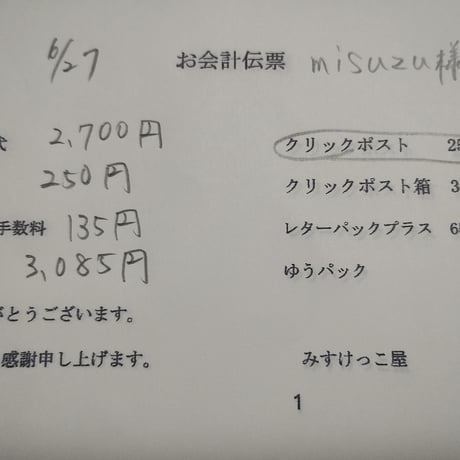 6/27 お会計伝票 misuzu様
代 2,700円 クリックポスト 25
250円 クリックポスト箱 3
手数料 135円 レターパックプラス 6
3,085円 ゆうパック
がとうございます。
感謝申し上げます。 みすけっこ屋
1